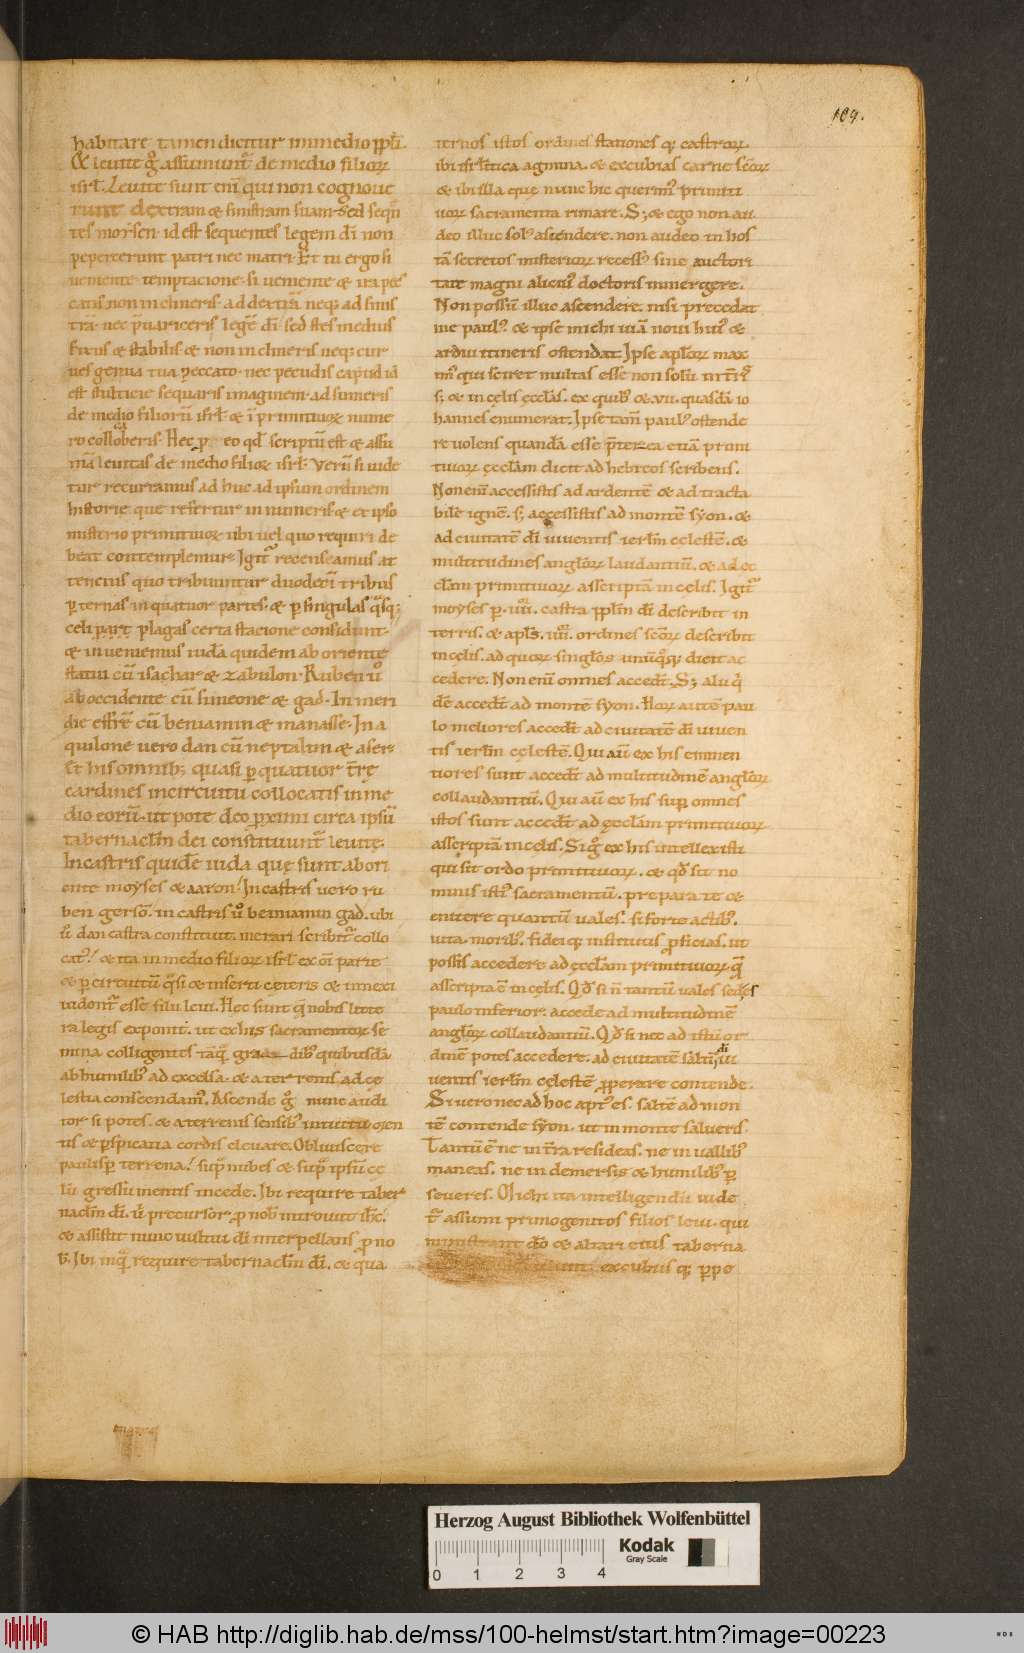 109.
habitare tamen dicitur inmedio ppl̄i.
& leuite g° assumunt̄ de medio filioꝝ
isrl̄. Leuite sunt eni͂ qui non cognoue
runt dextram & sinistram suam. Sed sequn̄
tes moẏsen. id est sequentes legem dī non
pepercerunt patri nec matri. Et tu ergo si
ueniente temptacione. si ueniente & ira pec
catis non inclineris. ad dextrā neqꝫ ad sinis
trā. nec p̄uariceris legē dī. sed stes medius
fixus & stabilis & non inclineris neqꝫ cur
ues genua tua peccato. nec pecudis capud id
est stulticie sequaris imaginem. adsumeris
de medio filiorū isrl̄ & ī primitiuoꝝ nume
ro colloberis. Hec p eo qd̄ scriptū est & assu
mā leuitas de medio filioꝝ isrl̄. Verū si uide
tur recurramus ad huc ad ipsum ordinem
historie que refertur in numeris & ex ipso
misterio primitiuoꝝ ubi uel quo requiri de
beat contemplemur. Igit᷑ recenseamus at
tencius quo tribuuntur duodecī tribus
ꝑ ternas in quatuor partes. & ꝑ singulas q̄sqꝫ
celi part plagas certa stacione considunt.
& inueniemus iudā quidem ab oriente
statui cū isachar & zabulon. Ruben u°
ab occidente cū simeone & gad. In meri
die effrē cū beniamin & manasse. In a
quilone uero dan cū neptalim & aser.
Et his omnibꝫ quasi ꝑ quatuor t̄rę
cardines incircuitu collocatis inme
dio eorū. ut pote deo ꝓximi circa ipsū
tabernacl̄m dei constituunt᷑ leuitę.
In castris quidē iuda quę sunt abori
ente moẏses & aaron. In castris uero ru
ben gersō. in castris u° beniamin gad. ubi
u° dan castra constituit. merari scribit᷑ collo
cat᷒. & ita in medio filioꝝ isrl̄ ex oī parte
& ꝑ circuitū q̄si & inserti cęteris & innexi
uidont᷑ esse filii leui. Hec sunt q̄ nobis litte
ra legis exponit. ut ex his sacramentoꝝ se
mina colligentes tāq̄ gradibꝰ quibusdā
ab humilibꝰ ad excelsa. & a terrenis ad cę
lestia conscendamꝰ. Ascende g° nunc audi
tor si potes. & a terrenis sensibꝰ intuitu men
tis & ꝑspicatia cordis eleuare. Obliuiscere
paulisꝑ terrena. supra nubes & supra ipsū cę
lū gressū mentis incede. Ibi require taber
nacl̄m dī. u° precursor ꝓ nob̄ introiuit ih̄c.
& assistit nunc uultui dī interpellans ꝓ no
b̄. Ibi inquā require tabernacl̄m dī. & qua
ternos istos ordines stationes qꝫ castroꝝ
ibi isrl̄itica agmina. & excubias carne scōꝝ
& ibi illa quę nunc hic querimꝰ primiti
uoꝝ sacramenta rimare. Sꝫ & ego non au
deo illuc solꝰ ascendere. non audeo in hos
tā secretos misterioꝝ recessꝰ sine auctori
tate magni alicuiꝰ doctoris inmergere.
Non possū illuc ascendere. nisi precedat
me paulꝰ. & ipse michi uiā noui huiꝰ &
ardui itineris ostendat. Ipse apl̄oꝝ max
imꝰ qui sciret multas esse non solū in t̄ris
sꝫ & in cęlis ęccl̄as. ex quibꝰ & .vii. quasdā io
hannes enumerat. Ipse tam̄ paulꝰ ostende
re uolens quandā esse p̄terea etiā primi
tiuoꝝ ęccl̄am dicit ad hebreos scribens.
Non eni͂ accessistis ad ardentē & ad tracta
bilē ignē. sꝫ accessistis ad montē sẏon. &
ad ciuitatē dī uiuentis ierl̄m cęlestē. &
multitudines angl̄oꝝ laudantiū. & ad ec
cl̄am primitiuoꝝ asscriptā in cęlis. Igit᷑
moẏses ꝑ .iiii. castra ppl̄m dī describit in
terris. & apl̄s .iiii. ordines scōꝝ describit
in cęlis. ad quoꝝ singl̄os unūqͤqꝫ dicit ac
cedere. Non eni͂ omnes accedt̄. Sꝫ aliqͥ
dē accedt̄ ad montē sẏon. Horꝝ autē pau
lo meliores accedt̄ ad ciuitatē dī uiuen
tis ierl̄m cęlestē. Qui aū ex his eminen
tiores sunt accedt̄ ad multitudinē angl̄oꝝ
collaudantiū. Qui aū ex his suꝑ omnes
istos sunt accedt̄ ad ęccl̄am primitiuoꝝ
asscriptā in cęlis. Si g° ex his intellexisti
qui sit ordo primitiuoꝝ. & qd̄ sit no
minis istiꝰ sacramentū. prepara te &
enitere quantū uales. si forte actibꝰ.
uita. moribꝰ. fide qꝫ institutis ꝓficias. ut
possis accedere ad ęccl̄am primitiuoꝝ q̄
asscripta ē in cęlis. Qd̄ si n̄ tantū uales sed es
paulo inferior. accede ad multitudinē
angl̄oꝝ collaudantiū. Qd̄ si nec ad istū or
dinē potes accedere. ad ciuitatē saltī dī ui
uentis ierl̄m cęlestē ꝓperare contende.
Si uero nec ad hoc aptꝰ es. saltē ad mon
tē contende sẏon. ut in monte salueris.
Tantū ē ne in t̄ra resideas. ne in uallibꝰ
maneas. ne in demersis & humilibꝰ ꝑ
seueres. Michi ita intelligendū uide
t᷑ assumi primogenitos filios leui. qui
ministrant dō & altari eius taberna
excubiis qꝫ ꝑpe
Herzog August Bibliothek Wolfenbüttel
0 1 2 3 4
Kodak
Gray Scale
© HAB http://diglib.hab.de/mss/100-helmst/start.htm?image=00223